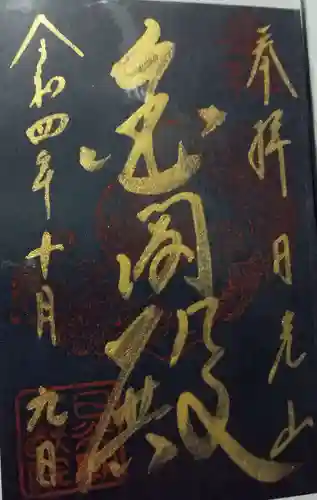 奉拝 日光山
閣殿
令和四年十月九日